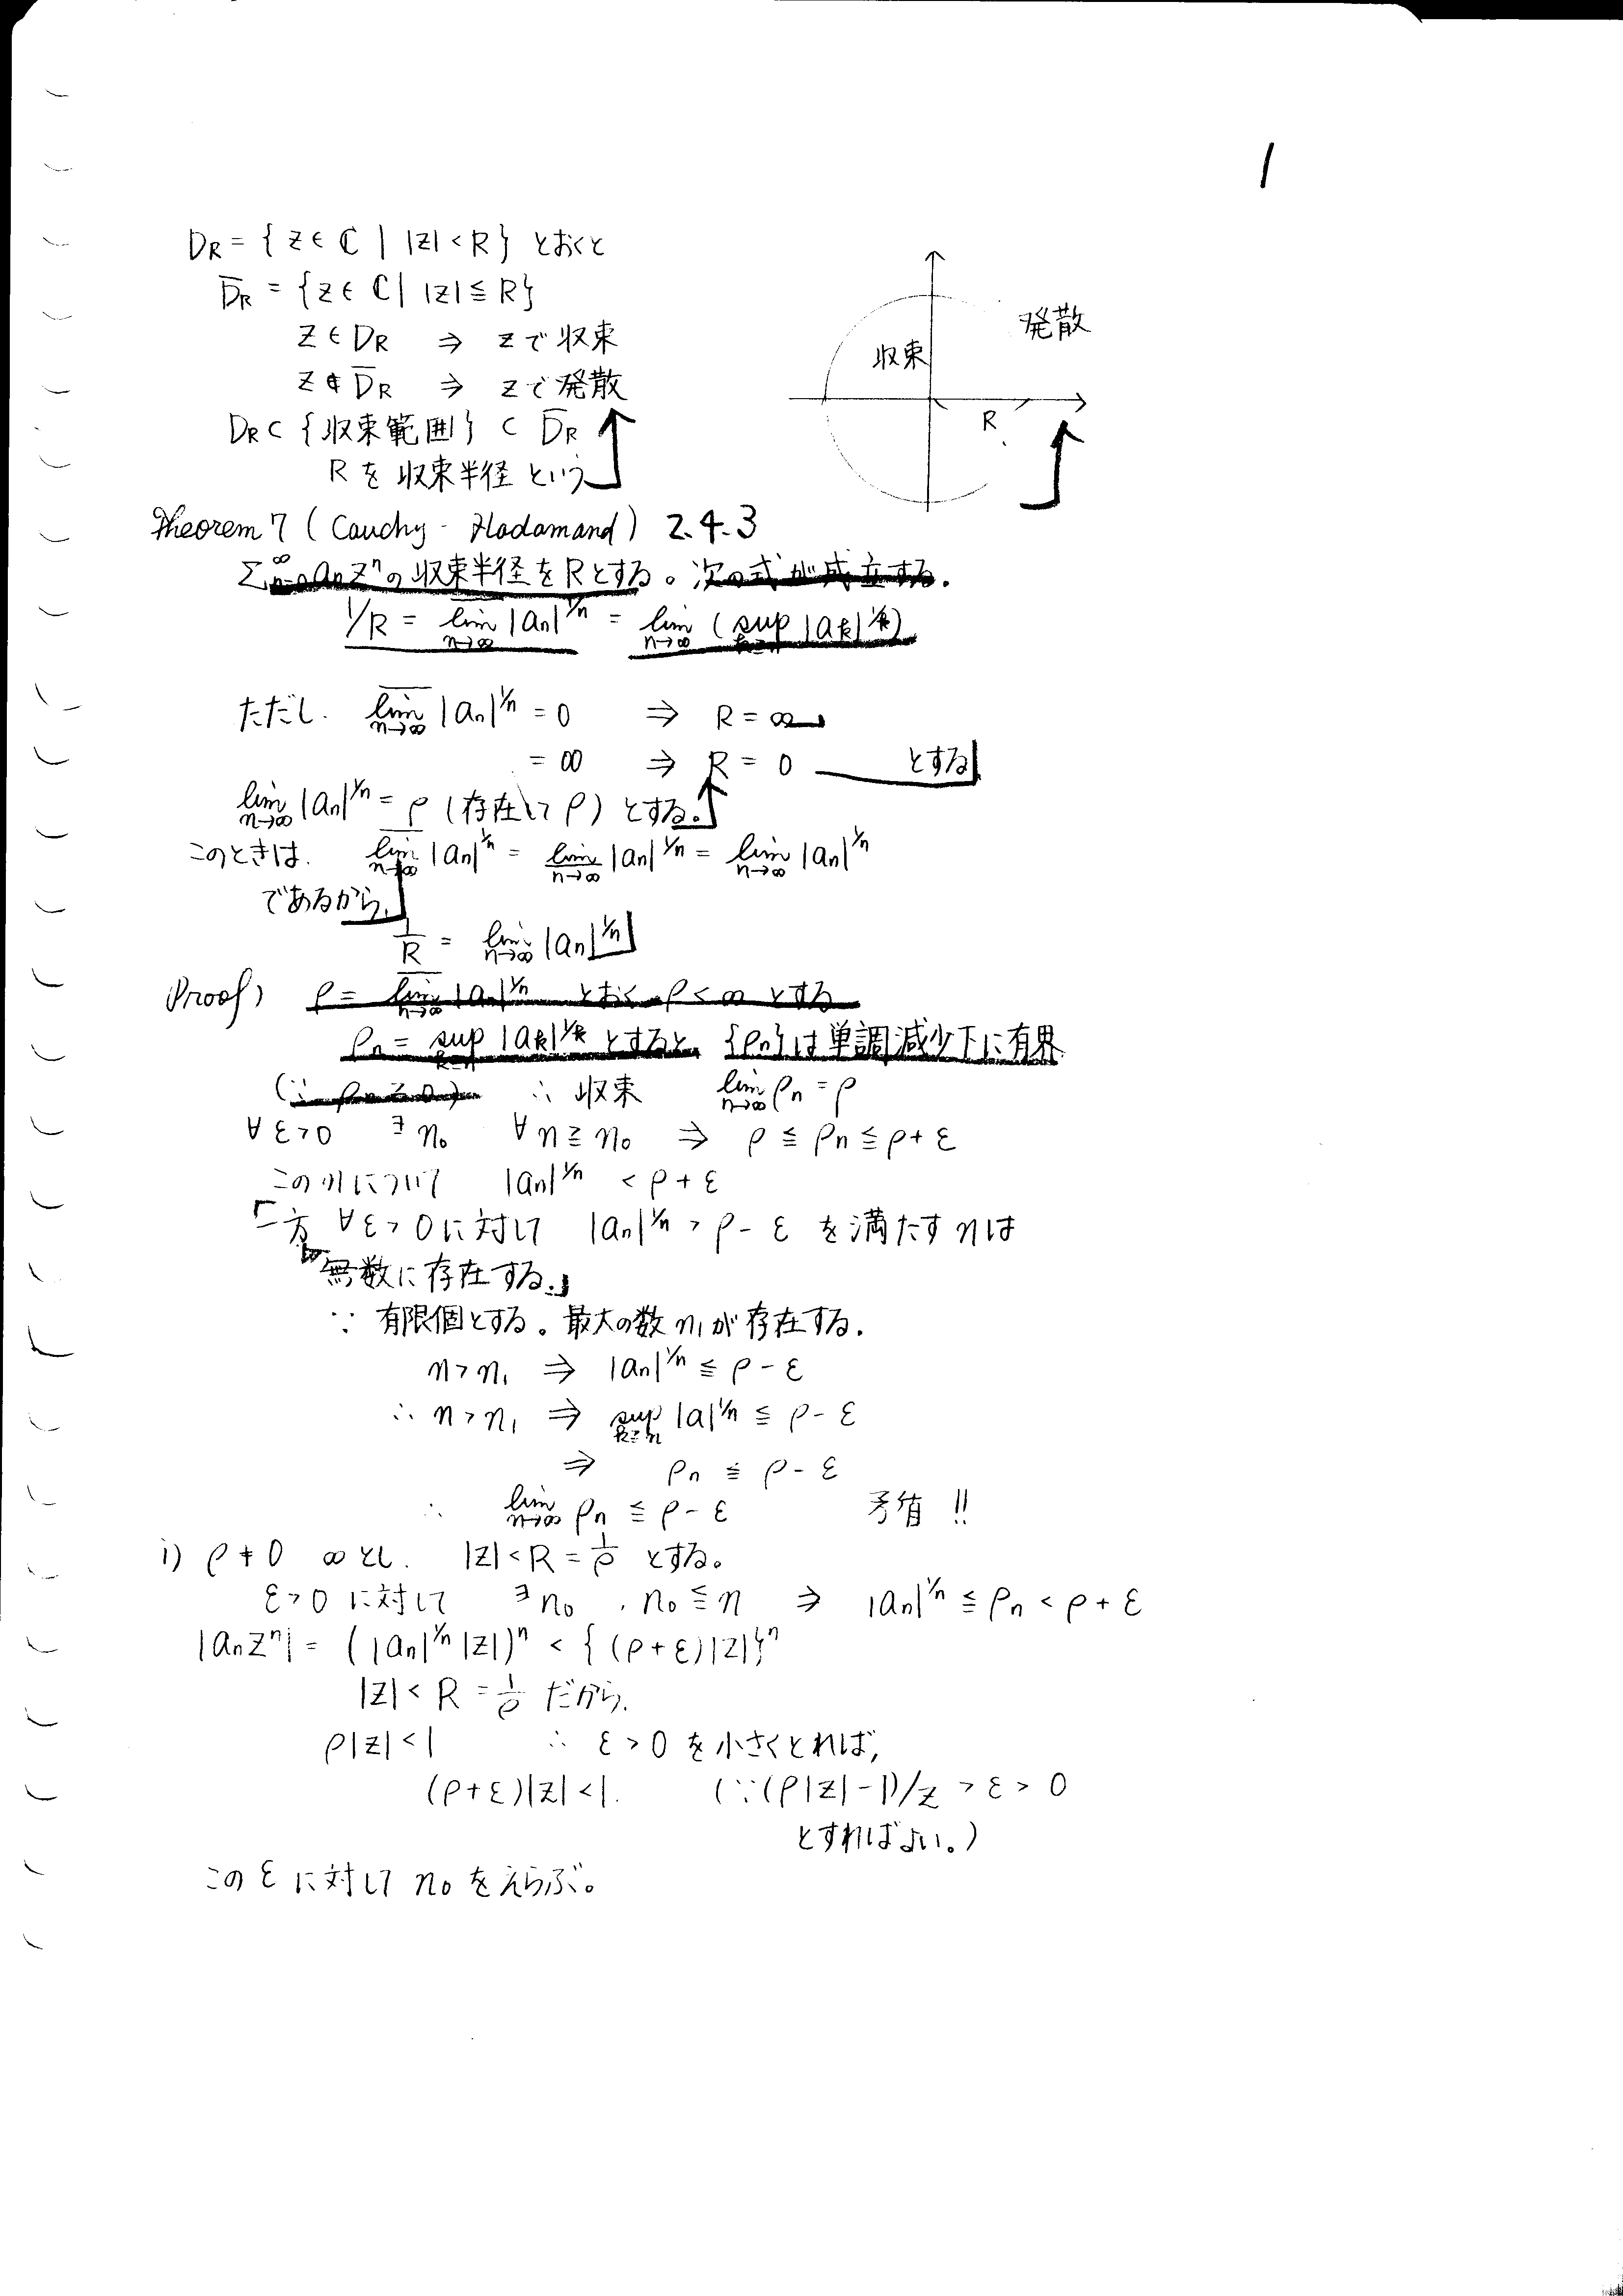 1
D_R = { z ∈ ℂ | |z| < R } とおくと
D̄_R = { z ∈ ℂ | |z| ≦ R }
z ∈ D_R ⇒ zで収束
z ∉ D̄_R ⇒ zで発散
D_R ⊂ {収束範囲} ⊂ D̄_R
Rを収束半径という
発散
収束
R
Theorem 7 (Cauchy - Hadamand) 2.4.3
Σ_{n=0}^∞ a_n z^n の収束半径をRとする。次の式が成立する.
1/R = \overline{lim}_{n→∞} |a_n|^{1/n} = lim_{n→∞} (sup_{k≧n} |a_k|^{1/k})
ただし. \overline{lim}_{n→∞} |a_n|^{1/n} = 0 ⇒ R = ∞
= ∞ ⇒ R = 0 とする
lim_{n→∞} |a_n|^{1/n} = ρ (存在して ρ) とする.
このときは. \overline{lim}_{n→∞} |a_n|^{1/n} = \underline{lim}_{n→∞} |a_n|^{1/n} = lim_{n→∞} |a_n|^{1/n}
であるから,
1/R = lim_{n→∞} |a_n|^{1/n}
Proof) ρ = \overline{lim}_{n→∞} |a_n|^{1/n} とおく ρ < ∞ とする
ρ_n = sup_{k≧n} |a_k|^{1/k} とすると, {ρ_n}は単調減少下に有界
(∵ ρ_n ≧ 0) ∴ 収束 lim_{n→∞} ρ_n = ρ
∀ε>0 ∃n_0 ∀n ≧ n_0 ⇒ ρ ≦ ρ_n ≦ ρ+ε
このnについて |a_n|^{1/n} < ρ + ε
「一方 ∀ε > 0に対して |a_n|^{1/n} > ρ - ε を満たすnは
無数に存在する.」
∵ 有限個とする。最大の数n_1が存在する.
n > n_1 ⇒ |a_n|^{1/n} ≦ ρ - ε
∴ n > n_1 ⇒ sup_{k≧n} |a|^{1/n} ≦ ρ - ε
⇒ ρ_n ≦ ρ - ε
∴ lim_{n→∞} ρ_n ≦ ρ - ε 矛盾 !!
i) ρ ≠ 0 ∞とし. |z| < R = 1/ρ とする。
ε>0 に対して ∃n_0 . n_0 ≦ n ⇒ |a_n|^{1/n} ≦ ρ_n < ρ + ε
|a_n z^n| = (|a_n|^{1/n} |z|)^n < {(ρ+ε)|z|}^n
|z| < R = 1/ρ だから.
ρ|z| < 1 ∴ ε > 0 を小さくとれば,
(ρ+ε)|z| < 1. (∵ (ρ|z| - 1)/z > ε > 0
とすればよい。)
このεに対して n_0 をえらぶ。